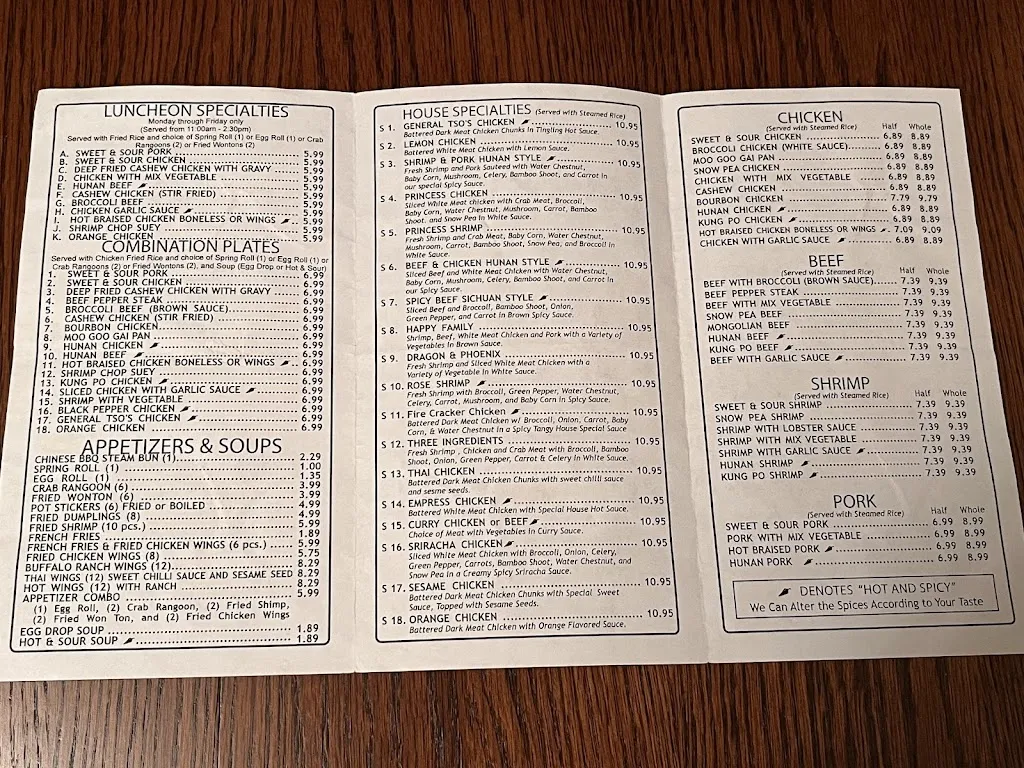 LUNCHEON SPECIALTIES
Monday through Friday only
(Served from 11:00am - 2:30pm)
Served with Fried Rice and choice of Spring Roll (1) or Egg Roll (1) or Crab
Rangoons (2) or Fried Wontons (2)
A. SWEET & SOUR PORK 5.99
B. SWEET & SOUR CHICKEN 5.99
C. DEEP FRIED CASHEW CHICKEN WITH GRAVY 5.99
D. CHICKEN WITH MIX VEGETABLE 5.99
E. HUNAN BEEF 5.99
F. CASHEW CHICKEN (STIR FRIED) 5.99
G. BROCCOLI BEEF 5.99
H. CHICKEN GARLIC SAUCE 5.99
I. HOT BRAISED CHICKEN BONELESS OR WINGS 5.99
J. SHRIMP CHOP SUEY 5.99
K. ORANGE CHICKEN 5.99
COMBINATION PLATES
Served with Chicken Fried Rice and choice of Spring Roll (1) or Egg Roll (1) or
Crab Rangoons (2) or Fried Wontons (2), and Soup (Egg Drop or Hot & Sour)
1. SWEET & SOUR PORK 6.99
2. SWEET & SOUR CHICKEN 6.99
3. DEEP FRIED CASHEW CHICKEN WITH GRAVY 6.99
4. BEEF PEPPER STEAK 6.99
5. BROCCOLI BEEF (BROWN SAUCE) 6.99
6. CASHEW CHICKEN (STIR FRIED) 6.99
7. BOURBON CHICKEN 6.99
8. MOO GOO GAI PAN 6.99
9. HUNAN CHICKEN 6.99
10. HUNAN BEEF 6.99
11. HOT BRAISED CHICKEN BONELESS OR WINGS 6.99
12. SHRIMP CHOP SUEY 6.99
13. KUNG PO CHICKEN 6.99
14. SLICED CHICKEN WITH GARLIC SAUCE 6.99
15. SHRIMP WITH VEGETABLE 6.99
16. BLACK PEPPER CHICKEN 6.99
17. GENERAL TSO'S CHICKEN 6.99
18. ORANGE CHICKEN 6.99
APPETIZERS & SOUPS
CHINESE BBQ STEAM BUN (1) 2.29
SPRING ROLL (1) 1.00
EGG ROLL (1) 1.35
CRAB RANGOON (6) 3.99
FRIED WONTON (6) 3.99
POT STICKERS (6) FRIED or BOILED 4.99
FRIED DUMPLINGS (8) 4.99
FRIED SHRIMP (10 pcs.) 5.99
FRENCH FRIES 1.89
FRENCH FRIES & FRIED CHICKEN WINGS (6 pcs.) 5.99
FRIED CHICKEN WINGS (8) 5.75
BUFFALO RANCH WINGS (12) 8.29
THAI WINGS (12) SWEET CHILLI SAUCE AND SESAME SEED 8.29
HOT WINGS (12) WITH RANCH 8.29
APPETIZER COMBO 5.99
(1) Egg Roll, (2) Crab Rangoon, (2) Fried Shrimp,
(2) Fried Won Ton, and (2) Fried Chicken Wings
EGG DROP SOUP 1.89
HOT & SOUR SOUP 1.89
HOUSE SPECIALTIES (Served with Steamed Rice)
S 1. GENERAL TSO'S CHICKEN 10.95
Battered Dark Meat Chicken Chunks in Tingling Hot Sauce.
S 2. LEMON CHICKEN 10.95
Battered White Meat Chicken with Lemon Sauce.
S 3. SHRIMP & PORK HUNAN STYLE 10.95
Fresh Shrimp and Pork Sauteed with Water Chestnut,
Baby Corn, Mushroom, Celery, Bamboo Shoot, and Carrot in
our special Spicy Sauce.
S 4. PRINCESS CHICKEN 10.95
Sliced White Meat chicken with Crab Meat, Broccoli,
Baby Corn, Water Chestnut, Mushroom, Carrot, Bamboo
Shoot. and Snow Pea in White Sauce.
S 5. PRINCESS SHRIMP 10.95
Fresh Shrimp and Crab Meat, Baby Corn, Water Chestnut,
Mushroom, Carrot, Bamboo Shoot, Snow Pea, and Broccoli in
White Sauce.
S 6. BEEF & CHICKEN HUNAN STYLE 10.95
Sliced Beef and White Meat Chicken with Water Chestnut,
Baby Corn, Mushroom, Celery, Bamboo Shoot, and Carrot in
our Spicy Sauce.
S 7. SPICY BEEF SICHUAN STYLE 10.95
Sliced Beef and Broccoli, Bamboo Shoot, Onion,
Green Pepper, and Carrot in Brown Spicy Sauce.
S 8. HAPPY FAMILY 10.95
Shrimp, Beef, White Meat Chicken and Pork with a Variety of
Vegetables In Brown Sauce.
S 9. DRAGON & PHOENIX 10.95
Fresh Shrimp and Sliced White Meat Chicken with a
Variety of Vegetable In White Sauce.
S 10. ROSE SHRIMP 10.95
Fresh Shrimp with Broccoli, Green Pepper, Water Chestnut,
Celery, Carrot, Mushroom, and Baby Corn in Spicy Sauce.
S 11. Fire Cracker Chicken 10.95
Battered Dark Meat Chicken w/ Broccoli, Onion, Carrot, Baby
Corn, & Water Chestnut in a Spicy Tangy House Special Sauce
S 12. THREE INGREDIENTS 10.95
Fresh Shrimp , Chicken and Crab Meat with Broccoli, Bamboo
Shoot, Onion, Green Pepper, Carrot & Celery in White Sauce.
S 13. THAI CHICKEN 10.95
Battered Dark Meat Chicken Chunks with sweet chilli sauce
and sesme seeds.
S 14. EMPRESS CHICKEN 10.95
Battered White Meat Chicken with Special House Hot Sauce.
S 15. CURRY CHICKEN or BEEF 10.95
Choice of Meat with Vegetables in Curry Sauce.
S 16. SRIRACHA CHICKEN 10.95
Sliced White Meat Chicken with Broccoli, Onion, Celery,
Green Pepper, Carrots, Bamboo Shoot, Water Chestnut, and
Snow Pea in a Creamy Spicy Sriracha Sauce.
S 17. SESAME CHICKEN 10.95
Battered Dark Meat Chicken Chunks with Special Sweet
Sauce, Topped with Sesame Seeds.
S 18. ORANGE CHICKEN 10.95
Battered Dark Meat Chicken with Orange Flavored Sauce.
CHICKEN
(Served with Steamed Rice) Half Whole
SWEET & SOUR CHICKEN 6.89 8.89
BROCCOLI CHICKEN (WHITE SAUCE) 6.89 8.89
MOO GOO GAI PAN 6.89 8.89
SNOW PEA CHICKEN 6.89 8.89
CHICKEN WITH MIX VEGETABLE 6.89 8.89
CASHEW CHICKEN 6.89 8.89
BOURBON CHICKEN 7.79 9.79
HUNAN CHICKEN 6.89 8.89
KUNG PO CHICKEN 6.89 8.89
HOT BRAISED CHICKEN BONELESS OR WINGS 7.09 9.09
CHICKEN WITH GARLIC SAUCE 6.89 8.89
BEEF
(Served with Steamed Rice) Half Whole
BEEF WITH BROCCOLI (BROWN SAUCE) 7.39 9.39
BEEF PEPPER STEAK 7.39 9.39
BEEF WITH MIX VEGETABLE 7.39 9.39
SNOW PEA BEEF 7.39 9.39
MONGOLIAN BEEF 7.39 9.39
HUNAN BEEF 7.39 9.39
KUNG PO BEEF 7.39 9.39
BEEF WITH GARLIC SAUCE 7.39 9.39
SHRIMP
(Served with Steamed Rice) Half Whole
SWEET & SOUR SHRIMP 7.39 9.39
SNOW PEA SHRIMP 7.39 9.39
SHRIMP WITH LOBSTER SAUCE 7.39 9.39
SHRIMP WITH MIX VEGETABLE 7.39 9.39
SHRIMP WITH GARLIC SAUCE 7.39 9.39
HUNAN SHRIMP 7.39 9.39
KUNG PO SHRIMP 7.39 9.39
PORK
(Served with Steamed Rice) Half Whole
SWEET & SOUR PORK 6.99 8.99
PORK WITH MIX VEGETABLE 6.99 8.99
HOT BRAISED PORK 6.99 8.99
HUNAN PORK 6.99 8.99
DENOTES "HOT AND SPICY"
We Can Alter the Spices According to Your Taste